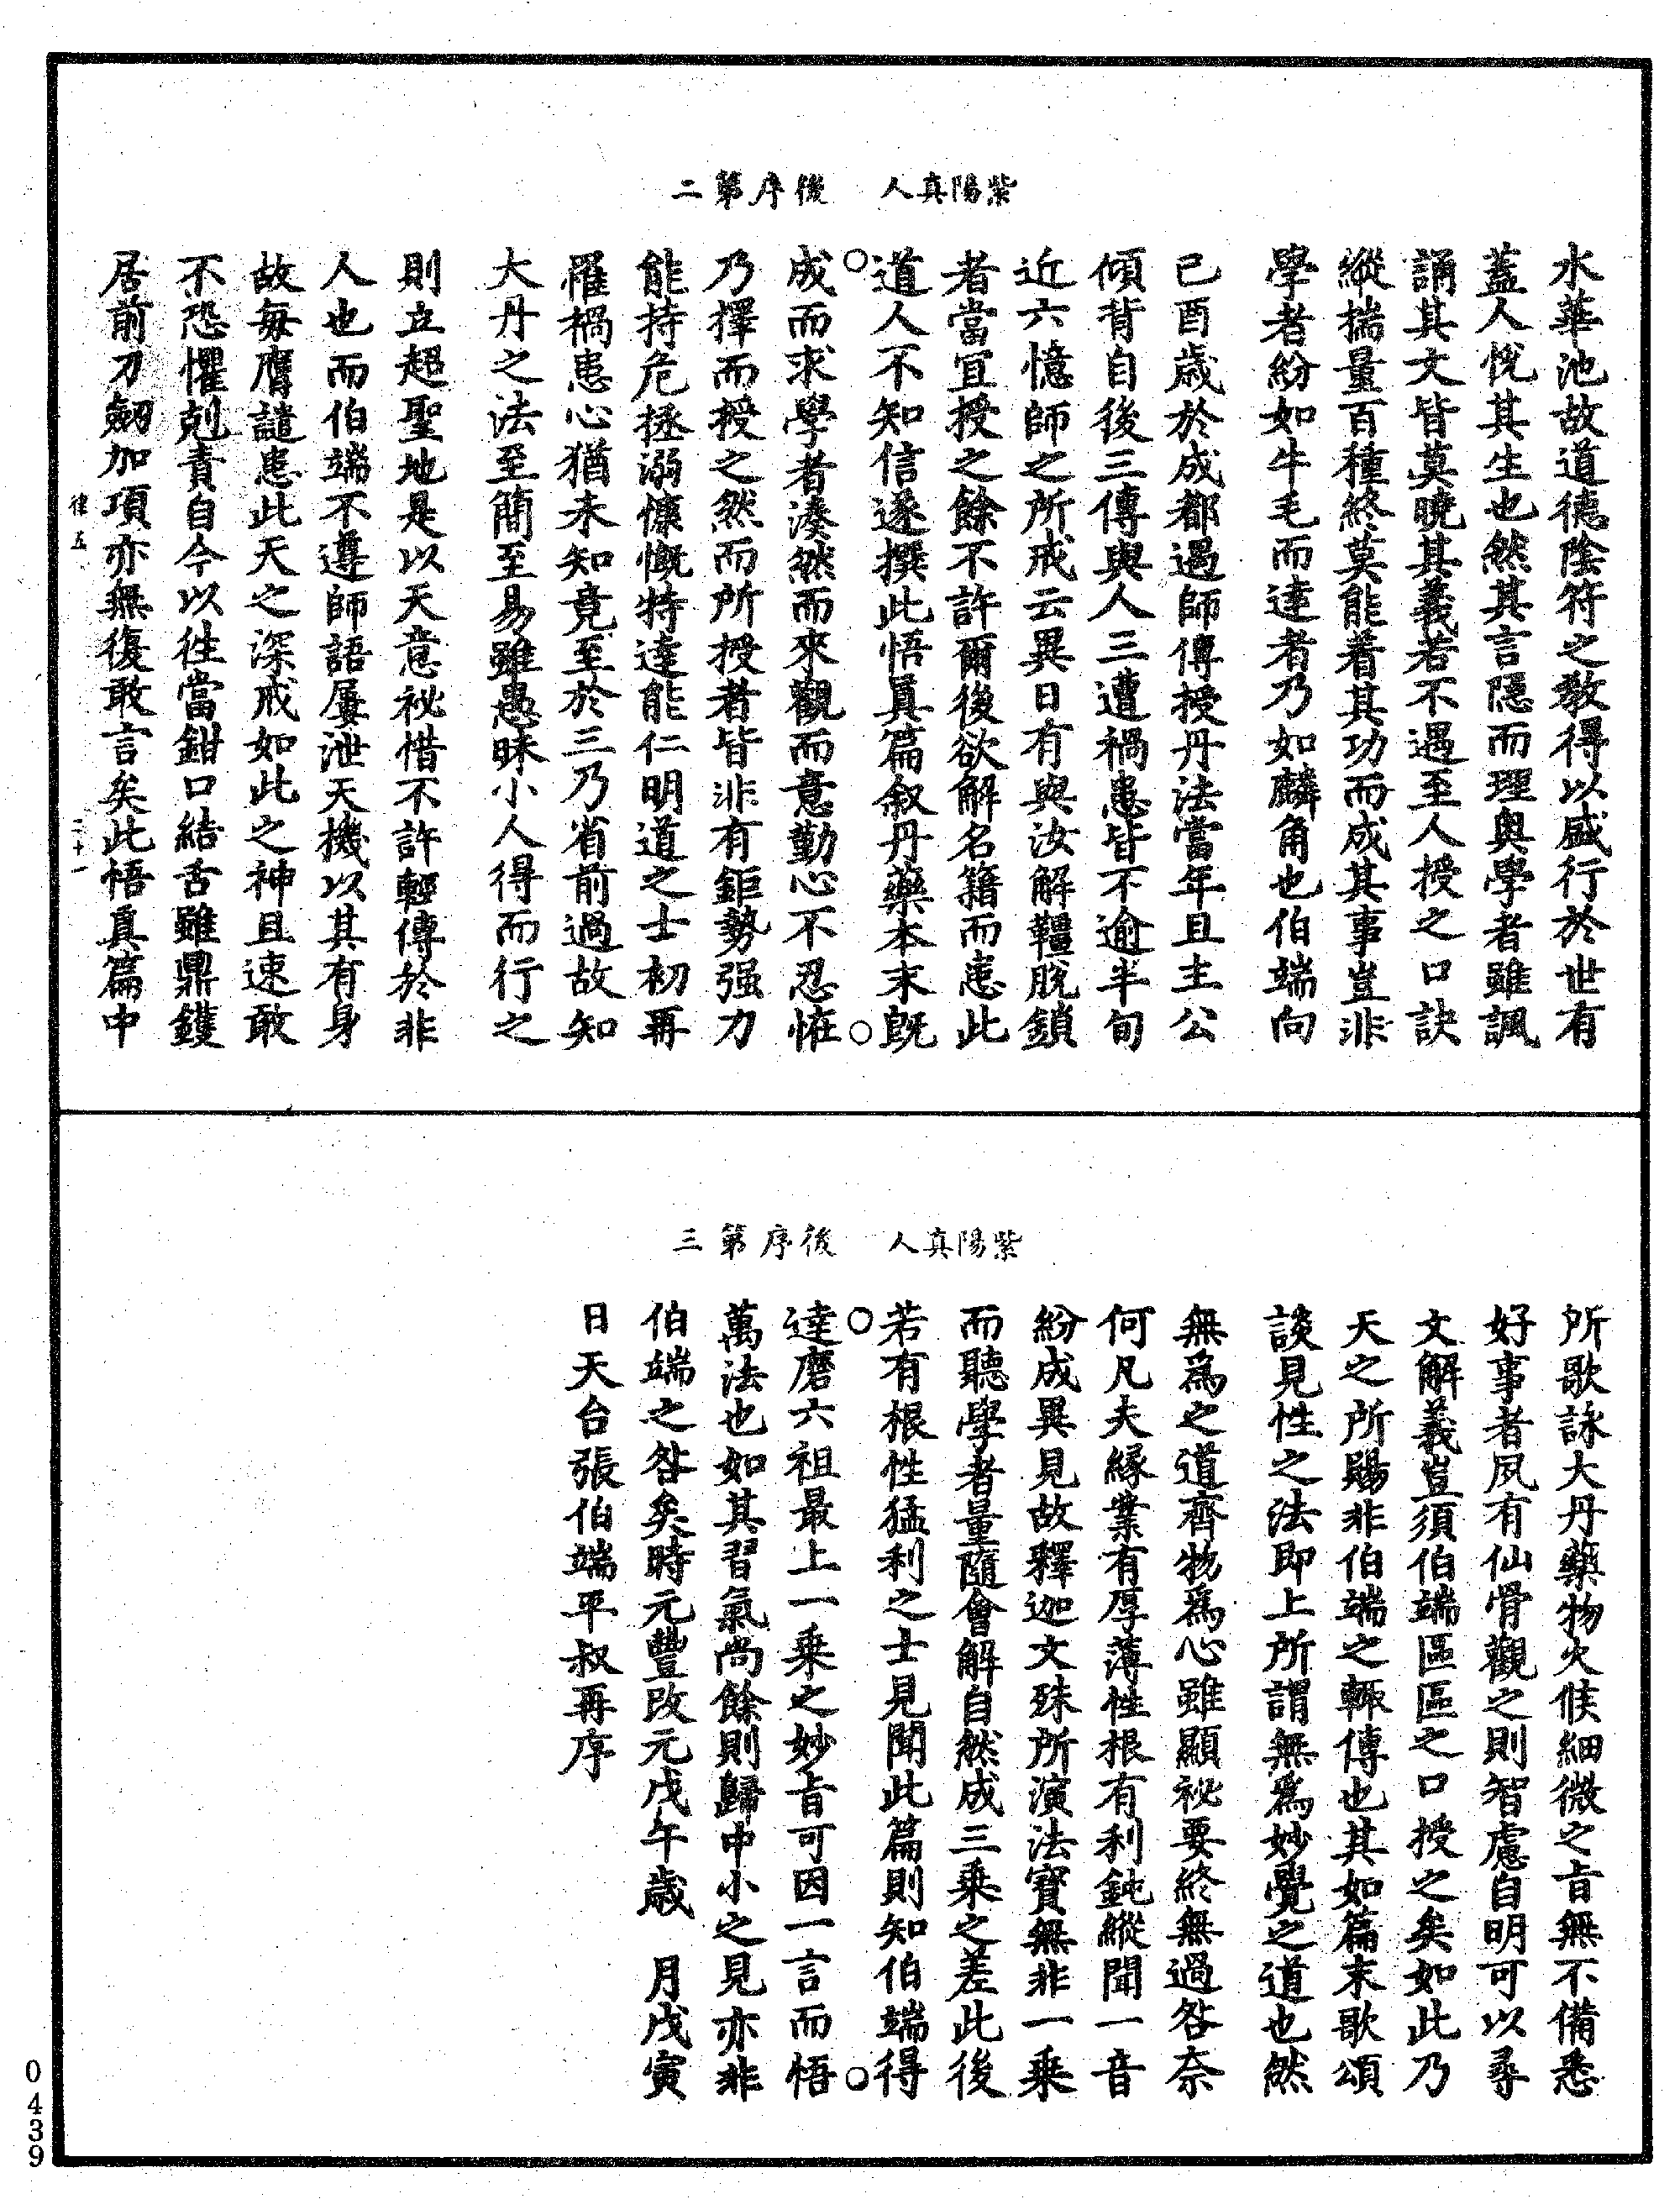 紫陽真人後序第二
水華池故道德陰符之教得以盛行於世有
蓋人悅其生也然其言隱而理奧學者雖諷
誦其文皆莫曉其義若不遇至人授之口訣
縱揣量百種終莫能着其功而成其事豈非
學者紛如牛毛而達者乃如麟角也伯端向
己酉歲於成都遇師傳授丹法當年且主公
傾背自後三傳與人三遭禍患皆不逾半旬
近六憶師之所戒云異日有與汝解韁脫鎖
者當宜授之餘不許爾後欲解名籍而患此
道人不知信遂撰此悟眞篇叙丹藥本末既
成而求學者湊然而來觀而意勤心不忍恡
乃擇而授之然而所授者皆非有鉅勢强力
能持危拯溺慷慨特達能仁明道之士初再
罹禍患心猶未知竟至於三乃省前過故知
大丹之法至簡至易雖愚昧小人得而行之
則立超聖地是以天意祕惜不許輕傳於非
人也而伯端不遵師語屢泄天機以其有身
故每膺譴患此天之深戒如此之神且速敢
不恐懼剋責自今以徃當鉗口結舌雖鼎鑊
居前刀劒加項亦無復敢言矣此悟真篇中
律五 二十一
紫陽真人後序第三
所歌詠大丹藥物火候細微之旨無不備悉
好事者夙有仙骨觀之則智慮自明可以尋
文解義豈須伯端區區之口授之矣如此乃
天之所賜非伯端之輒傳也其如篇末歌頌
談見性之法即上所謂無爲妙覺之道也然
無爲之道齊物爲心雖顯祕要終無過咎奈
何凡夫緣業有厚薄性根有利鈍縱聞一音
紛成異見故釋迦文殊所演法寶無非一乗
而聽學者量隨會解自然成三乗之差此後
若有根性猛利之士見聞此篇則知伯端得
達磨六祖最上一乗之妙旨可因一言而悟
萬法也如其習氣尚餘則歸中小之見亦非
伯端之咎矣時元豐改元戊午歲 月戊寅
日天台張伯端平叔再序
0439